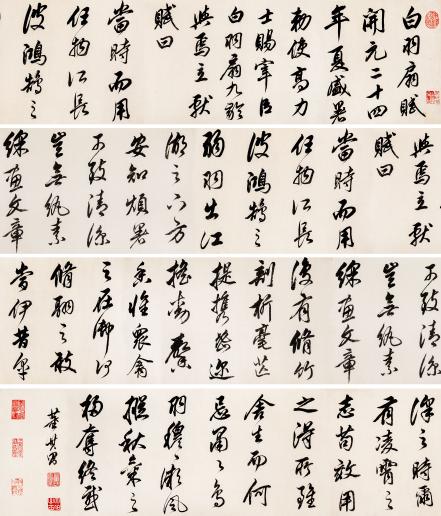 白羽扇賦
開元二十四
年夏盛暑
勅使高力
士賜宰臣
白羽扇九齡
與焉立獻
賦曰
當時而用
任物所長
彼鴻鵠之
與焉立獻
賦曰
當時而用
任物所長
彼鴻鵠之
弱羽出江
湖之下方
安知煩暑
可致清涼
豈無紈素
綵畫文章
可致清涼
豈無紈素
綵畫文章
復有脩竹
剖析毫芒
提攜密邇
搖動馨
香惟眾禽
之在御何
脩翮之敢
當伊昔皋
澤之時爾
有凌霄之
志苟效用
之得所雖
舍生而何
忌肅々鳥
羽穆々微風
縱秋氣之
移奪終感
董其昌